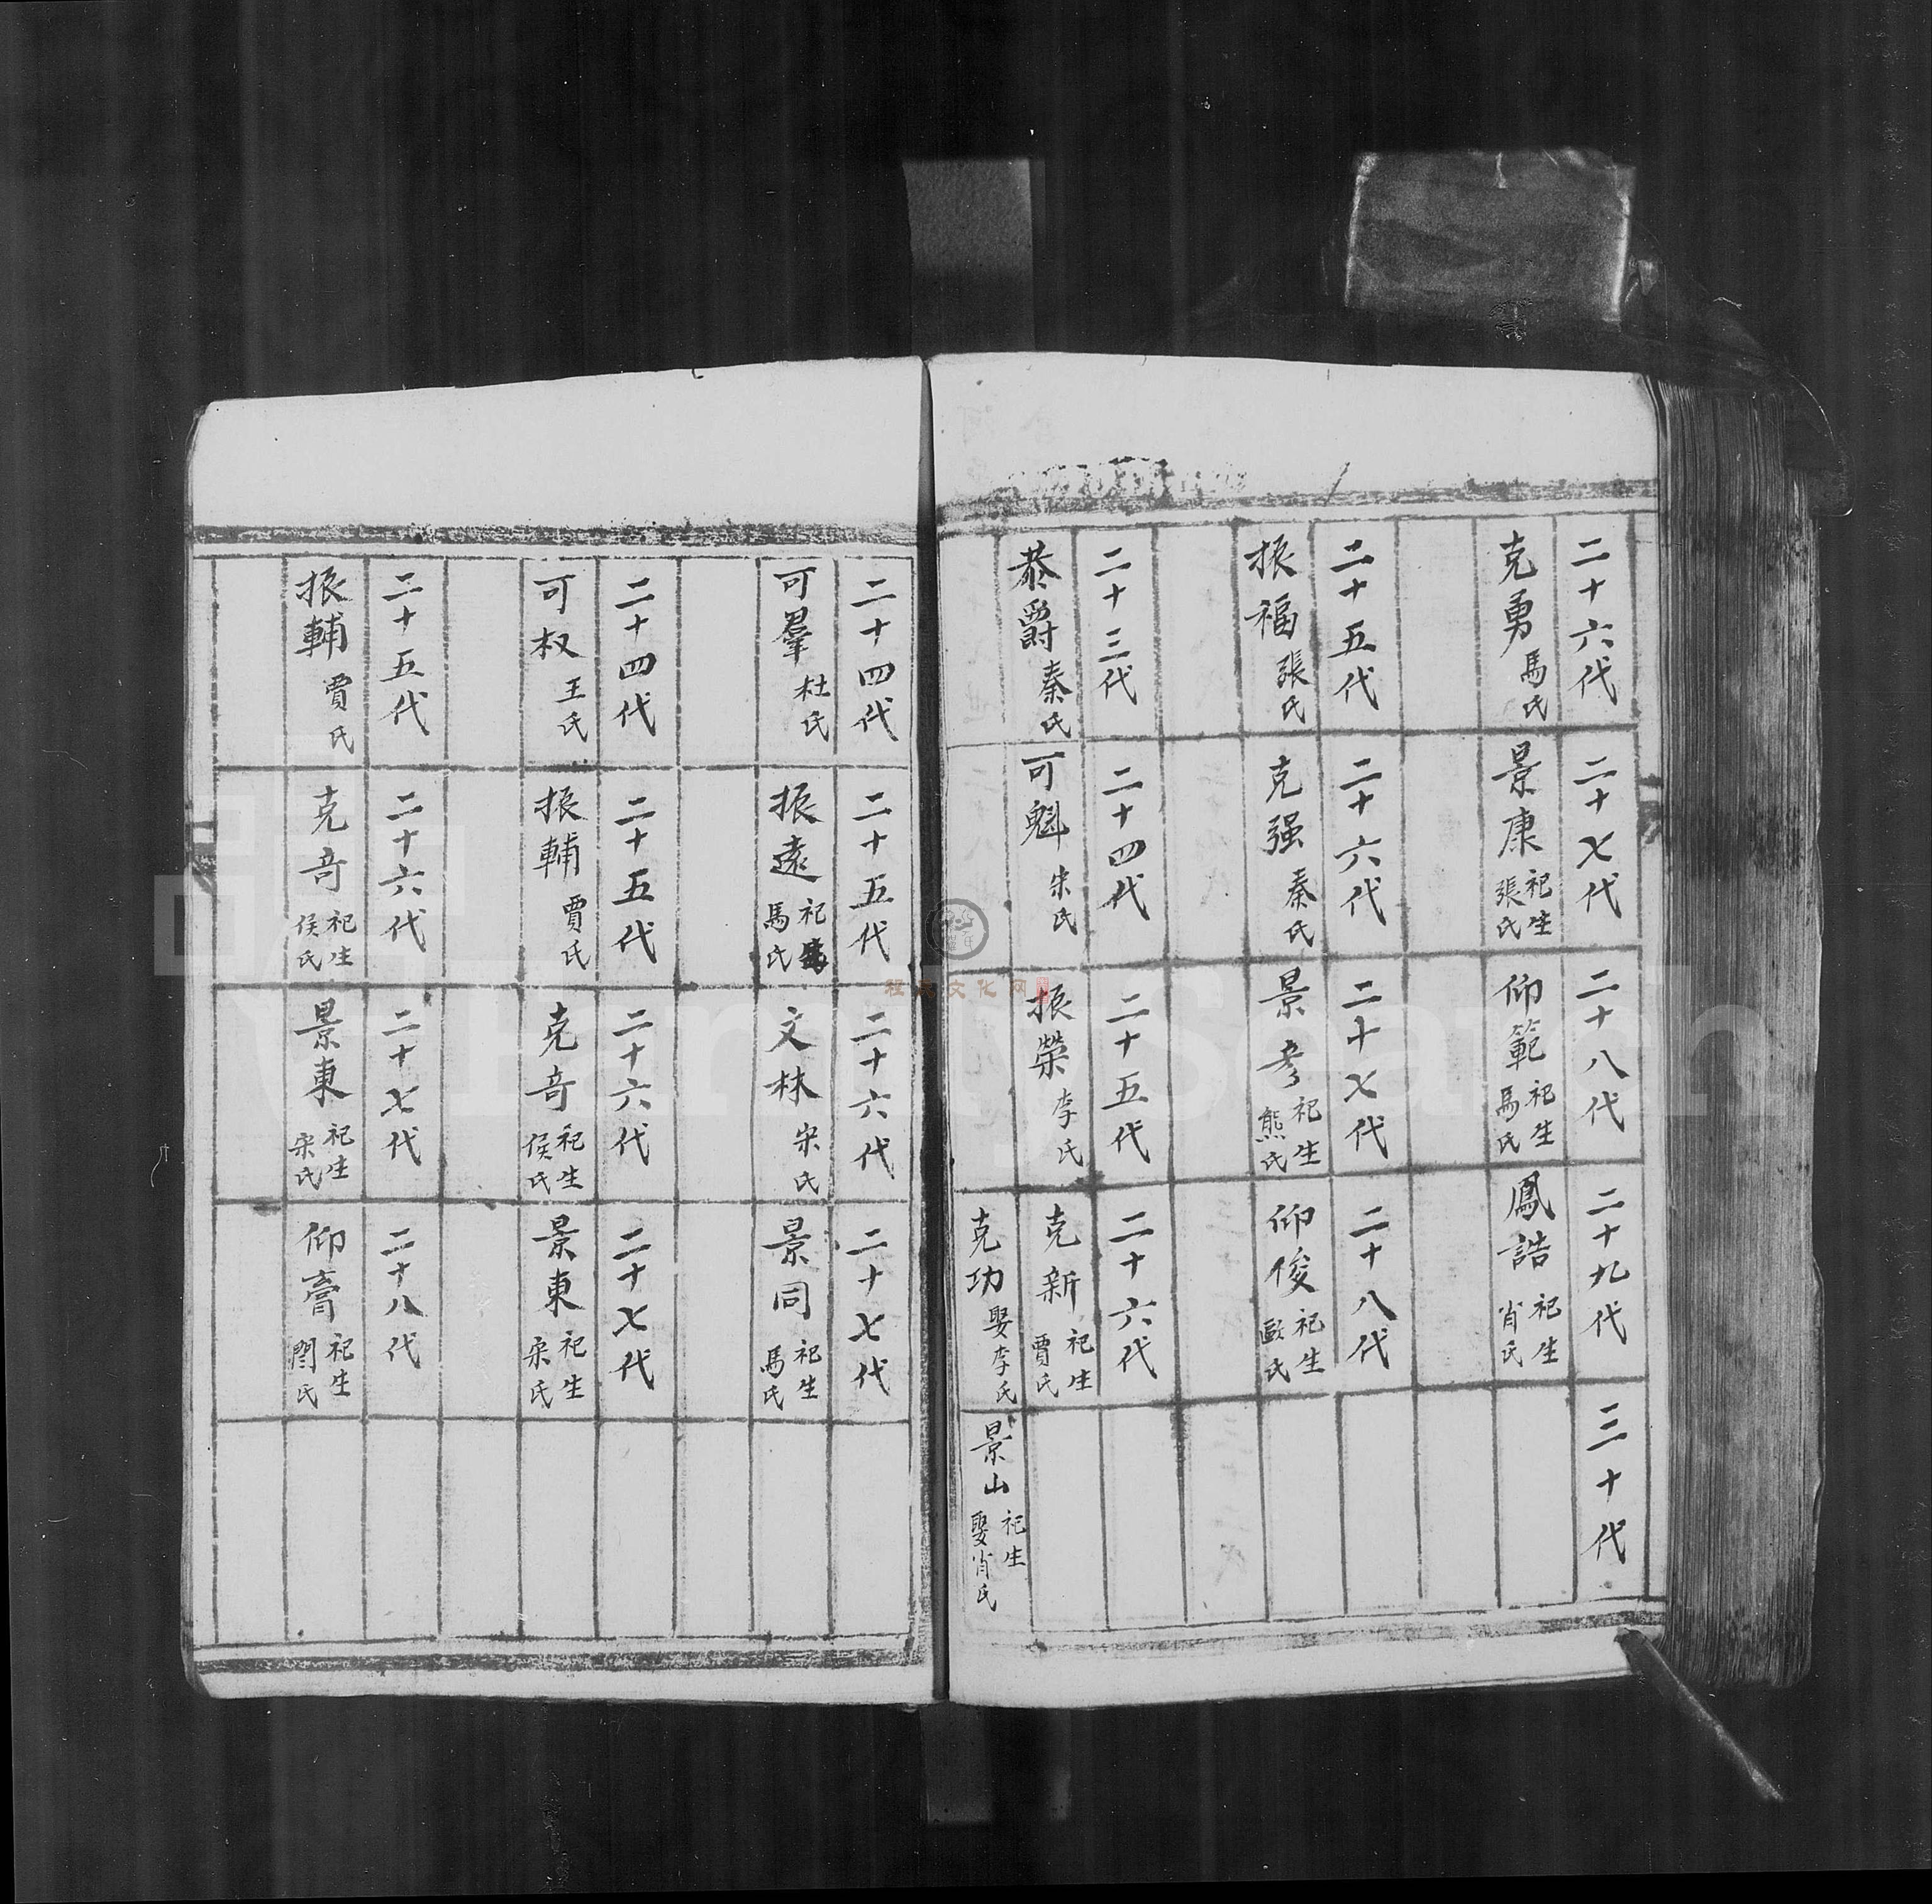 二十六代 二十七代 二十八代 二十九代 三十代
克勇 馬氏 景康 祀生 張氏 仰範 祀生 馬氏 鳳誥 祀生 肖氏
二十五代 二十六代 二十七代 二十八代
振福 張氏 克强 秦氏 景彥 祀生 熊氏 仰俊 祀生 歐氏
二十三代 二十四代 二十五代 二十六代
恭爵 秦氏 可魁 宋氏 振榮 李氏 克新 祀生 賈氏
克功 娶李氏 景山 祀生 娶肖氏
二十四代 二十五代 二十六代 二十七代
可羣 杜氏 振遠 祀生 馬氏 文林 宋氏 景同 祀生 馬氏
二十四代 二十五代 二十六代 二十七代
可权 王氏 振輔 賈氏 克奇 祀生 侯氏 景東 祀生 宋氏
二十五代 二十六代 二十七代 二十八代
振輔 賈氏 克奇 祀生 侯氏 景東 祀生 宋氏 仰膏 祀生 閆氏
FamilySearch
程氏文化网